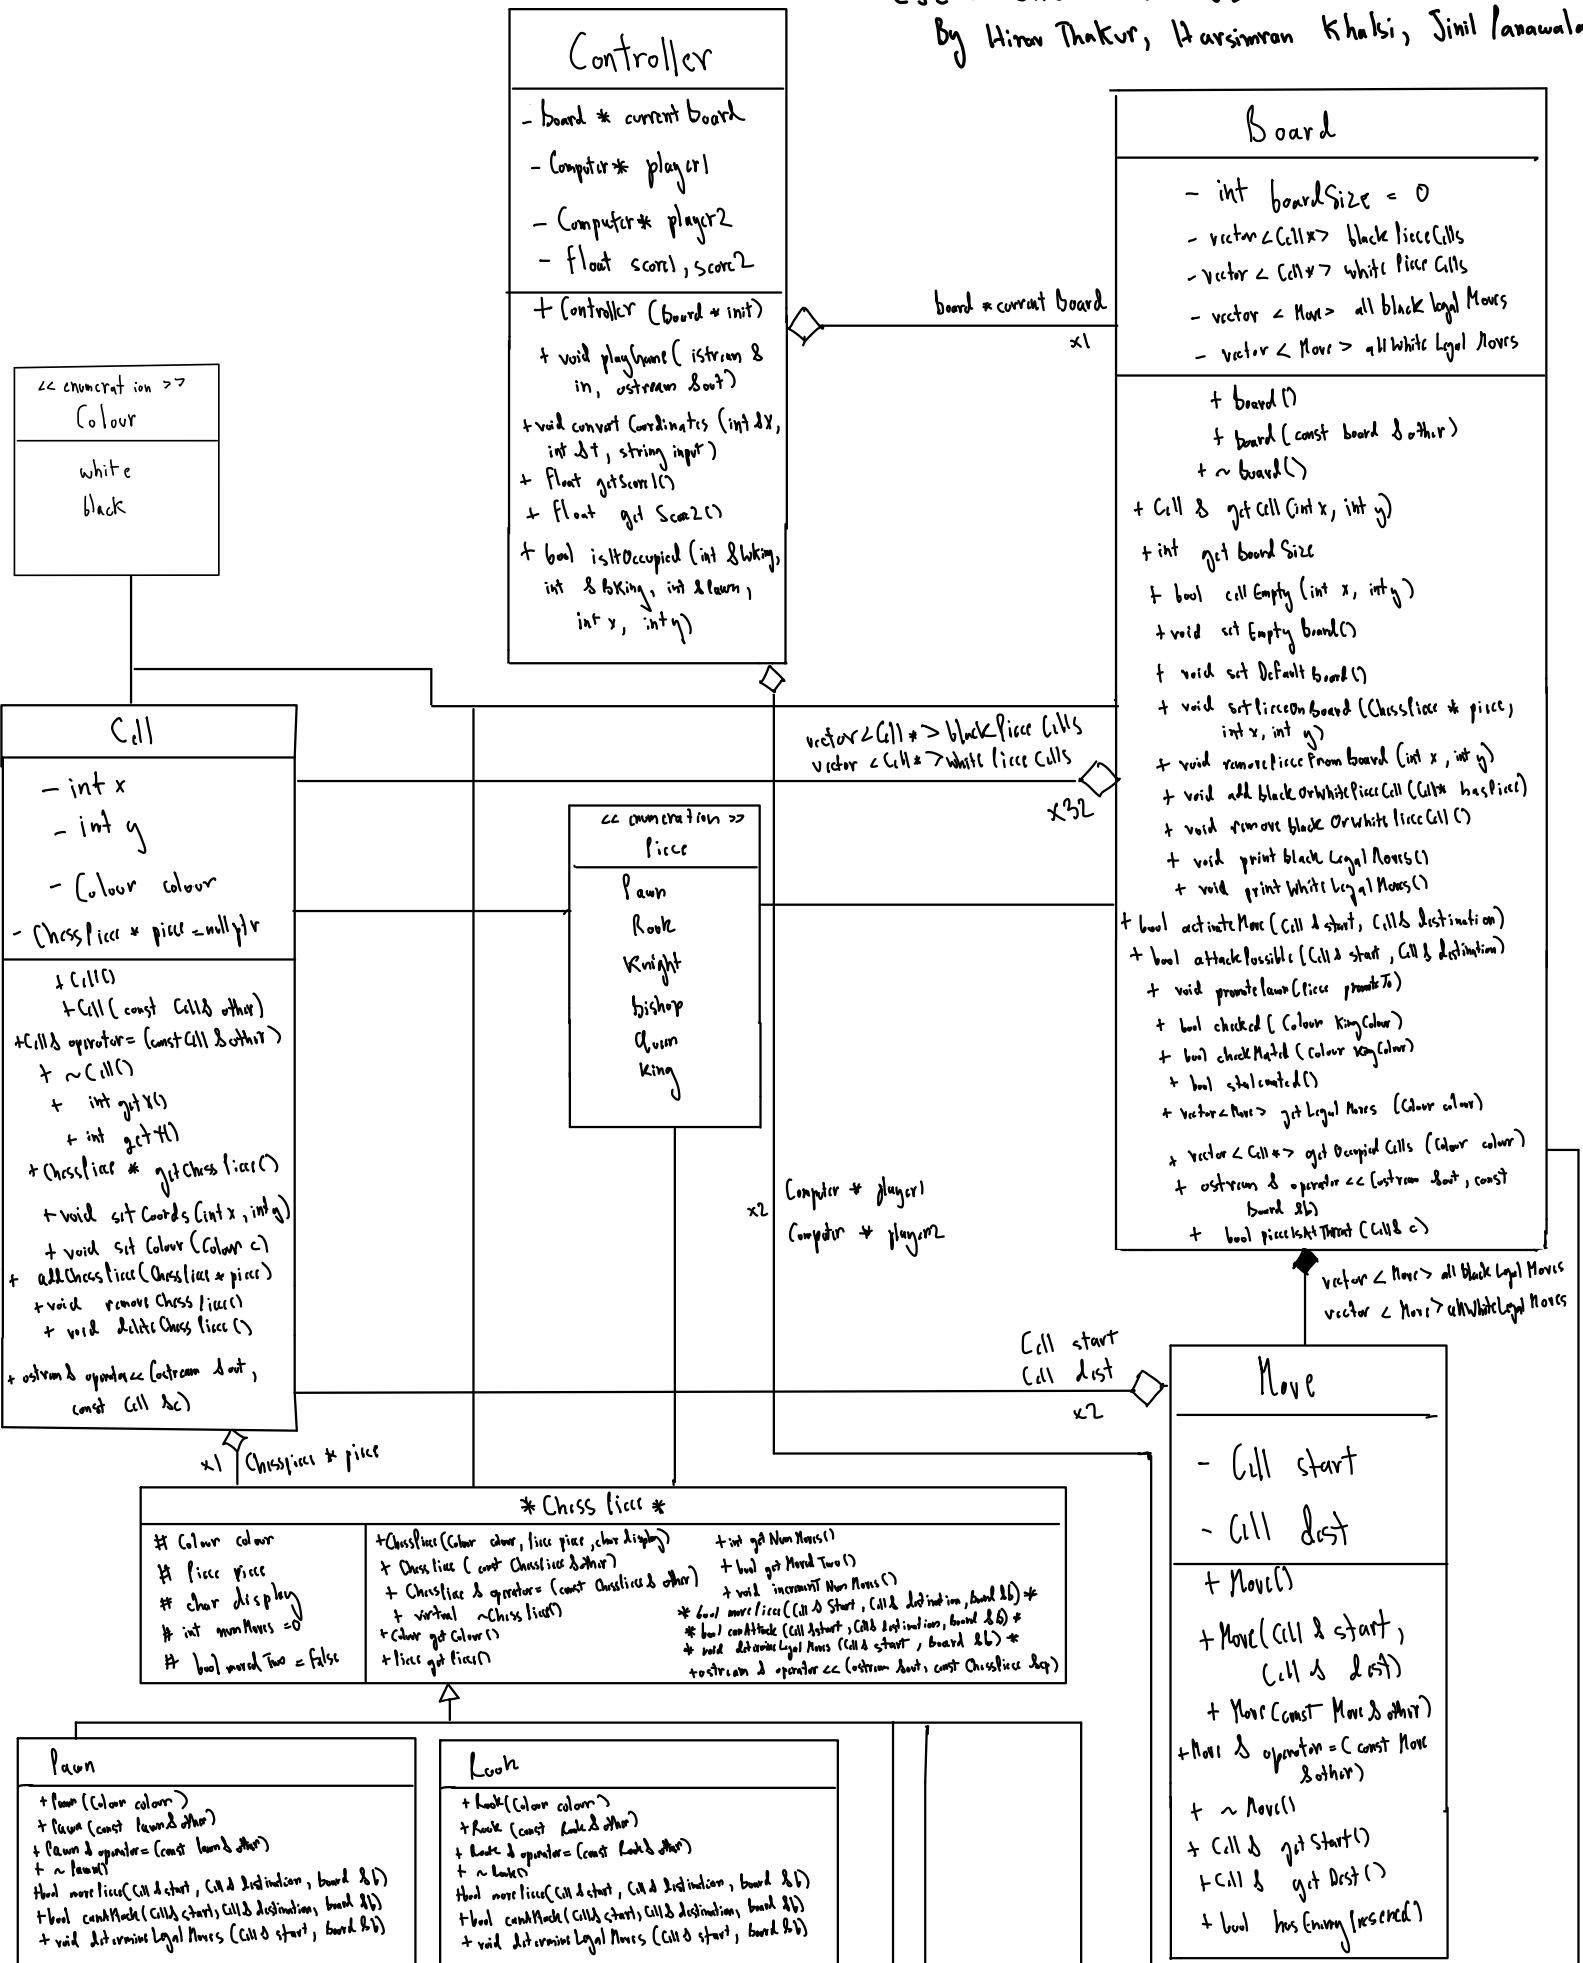 By Hirav Thakur, Harsimran Khalsi, Jinil Panawala
Controller
- Board * current Board
- Computer* player1
- Computer* player2
- float score1, score2
+ Controller (Board * init)
+ void playGame( istream &
in, ostream &out)
+ void convert Coordinates (int &x,
int &y, string input)
+ float getScore1()
+ float get Score2()
+ bool isItOccupied (int &wking,
int &BKing, int &Pawn,
int x, int y)
board * current Board
x1
Board
- int boardSize = 0
- vector<Cell*> black Piece Cells
- vector < Cell*> white Piece Cells
- vector < Move> all black legal Moves
- vector < Move > all White Legal Moves
+ Board ()
+ board (const board & other)
+ ~ Board()
+ Cell & getCell (int x, int y)
+ int get Board Size
+ bool cell Empty (int x, int y)
+ void set Empty Board()
+ void set Default Board()
+ void setPieceOnBoard (ChessPiece * piece,
int x, int y)
+ void removePieceFromBoard (int x, int y)
+ void add black Or White Piece Cell (Cell* hasPiece)
+ void remove black Or White Piece Cell ()
+ void print black Legal Moves()
+ void print White Legal Moves()
+ bool activateMove (Cell & start, Cell & destination)
+ bool attackPossible (Cell & start, Cell & destination)
+ void promotePawn (Piece promoteTo)
+ bool checked ( Colour KingColour)
+ bool checkMated (Colour KingColour)
+ bool stalemated()
+ vector<Move> get Legal Moves (Colour colour)
+ vector < Cell*> get Occupied Cells (Colour colour)
+ ostream & operator << (ostream &out, const
Board &b)
+ bool pieceIsAtThreat (Cell& c)
<< enumeration >>
Colour
white
black
Cell
- int x
- int y
- Colour colour
- ChessPiece * piece = nullptr
+ Cell()
+Cell ( const Cell& other)
+Cell& operator= (const Cell &other)
+ ~Cell()
+ int getX()
+ int getY()
+ ChessPiece * getChess Piece()
+ void set Coords (int x, int y)
+ void set Colour (Colour c)
+ addChess Piece (ChessPiece * piece)
+ void remove Chess Piece()
+ void delete Chess Piece ()
+ ostream & operator << (ostream &out,
const Cell &c)
vector<Cell *> black Piece Cells
vector <Cell*> white Piece Cells
x32
<< enumeration >>
Piece
Pawn
Rook
Knight
Bishop
Queen
King
x2
Computer * player1
Computer * player2
vector < Move> all Black Legal Moves
vector < Move> allWhiteLegal Moves
Cell start
Cell dest
x2
Move
- Cell start
- Cell dest
+ Move()
+ Move(Cell & start,
Cell & dest)
+ Move (const Move & other)
+Move & operator = ( const Move
&other)
+ ~ Move()
+ Cell & getStart()
+ Cell & get Dest ()
+ bool has Enemy
x1
Chesspiece * piece
* Chess Piece *
# Colour colour
# Piece piece
# char display
# int numMoves =0
# bool moved Two = False
+ChessPiece (Colour colour, Piece piece, char display)
+ Chess Piece ( const ChessPiece &other)
+ ChessPiece & operator= (const ChessPiece & other)
+ virtual ~Chess Piece()
+Colour get Colour ()
+ Piece get Piece()
+ int get Num Moves()
+ bool get Moved Two ()
+ void increment Num Moves()
* bool movePiece (Cell & Start, Cell & destination, Board &b) *
* bool canAttack (Cell &start, Cell& destination, Board &b) *
* void determineLegal Moves (Cell & start, Board &b) *
+ostream & operator << (ostream &out, const ChessPiece &cp)
Pawn
+ Pawn (Colour colour)
+ Pawn (const Pawn& other)
+ Pawn & operator= (const Pawn & other)
+ ~ Pawn()
+bool movePiece (Cell & start, Cell & destination, board &b)
+bool canAttack (Cell& start, Cell & destination, board &b)
+ void determine Legal Moves (Cell & start, board &b)
Rook
+ Rook (Colour colour)
+ Rook (const Rook & other)
+ Rook & operator= (const Rook & other)
+ ~ Rook()
+bool movePiece (Cell & start, Cell & destination, board &b)
+bool canAttack (Cell& start, Cell & destination, board &b)
+ void determine Legal Moves (Cell & start, board &b)